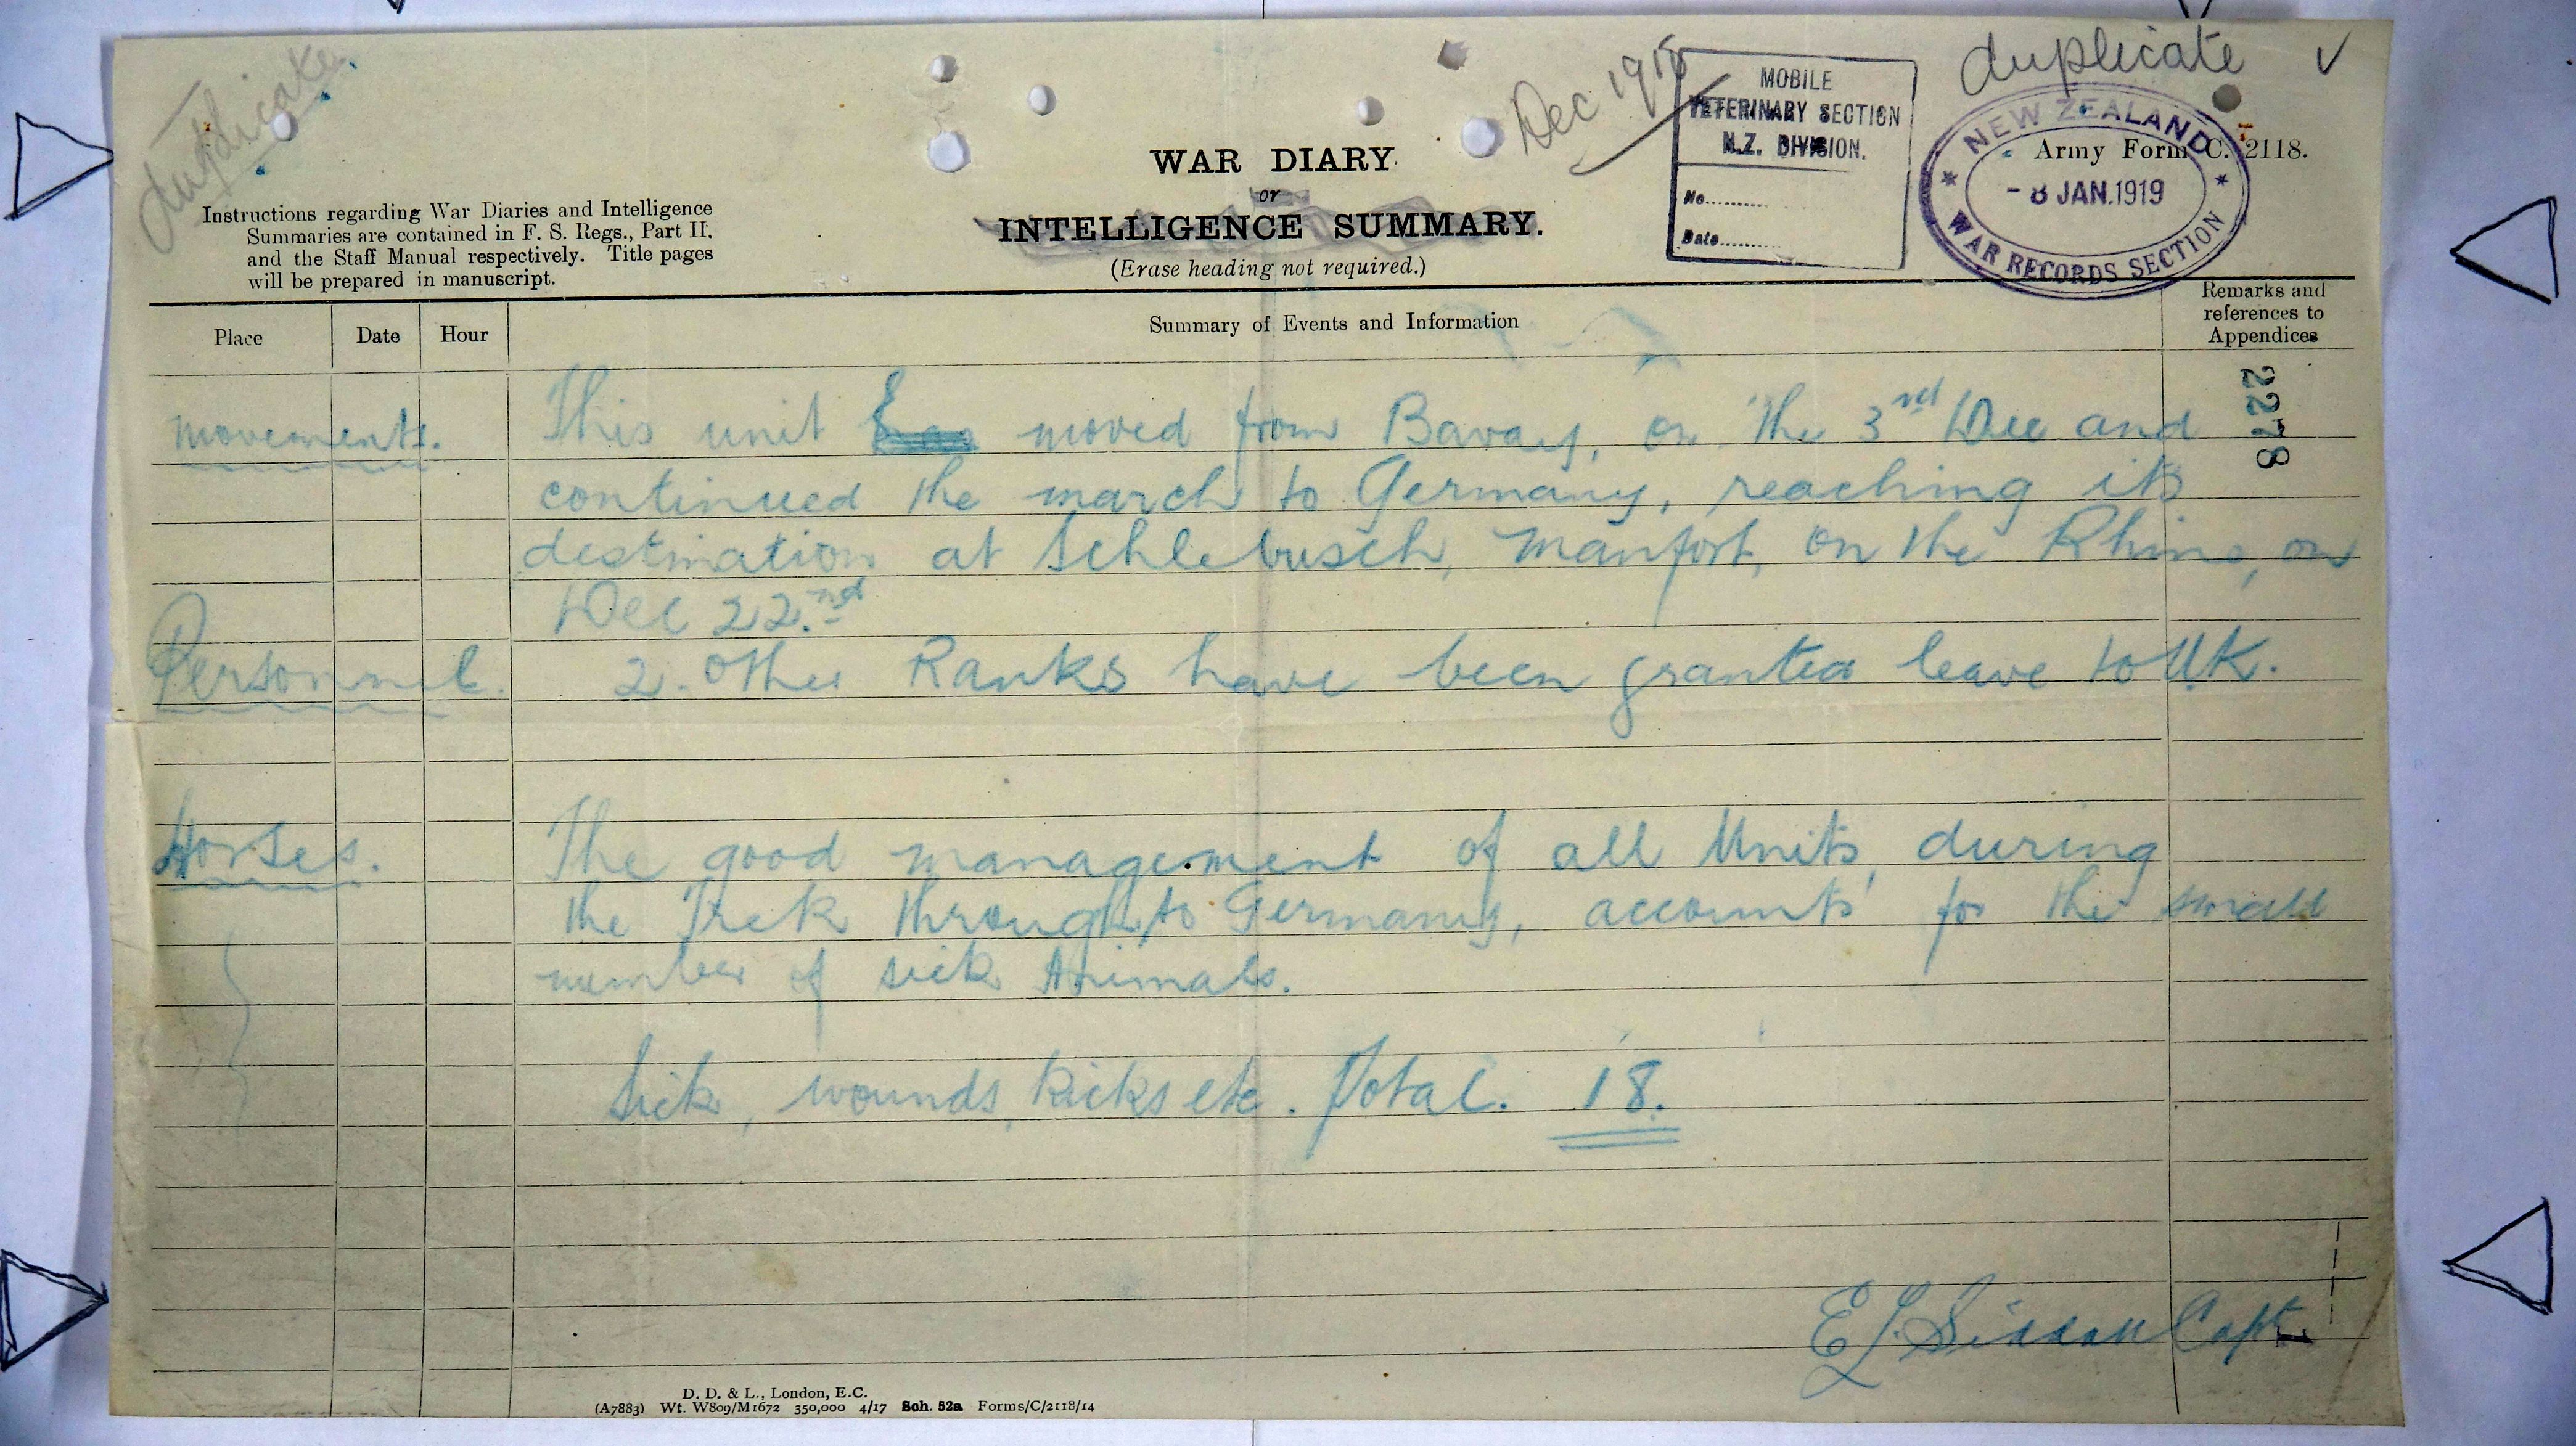 duplicate
Dec 1918
MOBILE
VETERINARY SECTION
N.Z. DIVISION.
No..........
Date..........
duplicate ✓
NEW ZEALAND
- 8 JAN.1919
WAR RECORDS SECTION
Army Form C. 2118.
WAR DIARY
or
INTELLIGENCE SUMMARY.
(Erase heading not required.)
Instructions regarding War Diaries and Intelligence
Summaries are contained in F. S. Regs., Part II.
and the Staff Manual respectively. Title pages
will be prepared in manuscript.
Place Date Hour Summary of Events and Information Remarks and
references to
Appendices
2278
Movements. This unit moved from Bavay, on the 3rd Dec and
continued the march to Germany, reaching its
destination at Schlebusch, Manfort, on the Rhine, on
Dec 22.nd
Personnel. 2. Other Ranks have been granted leave to U.K.
Horses. The good management of all Units, during
the Trek through to Germany, accounts for the small
number of sick Animals.
Sick, wounds, Kicks etc. Total. 18.
Capt.
D. D. & L., London, E.C.
(A7883) Wt. W809/M1672 350,000 4/17 Sch. 52a Forms/C/2118/14